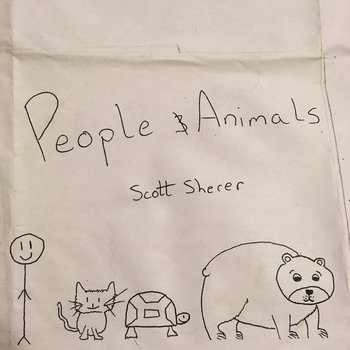 People & Animals
Scott Sherer